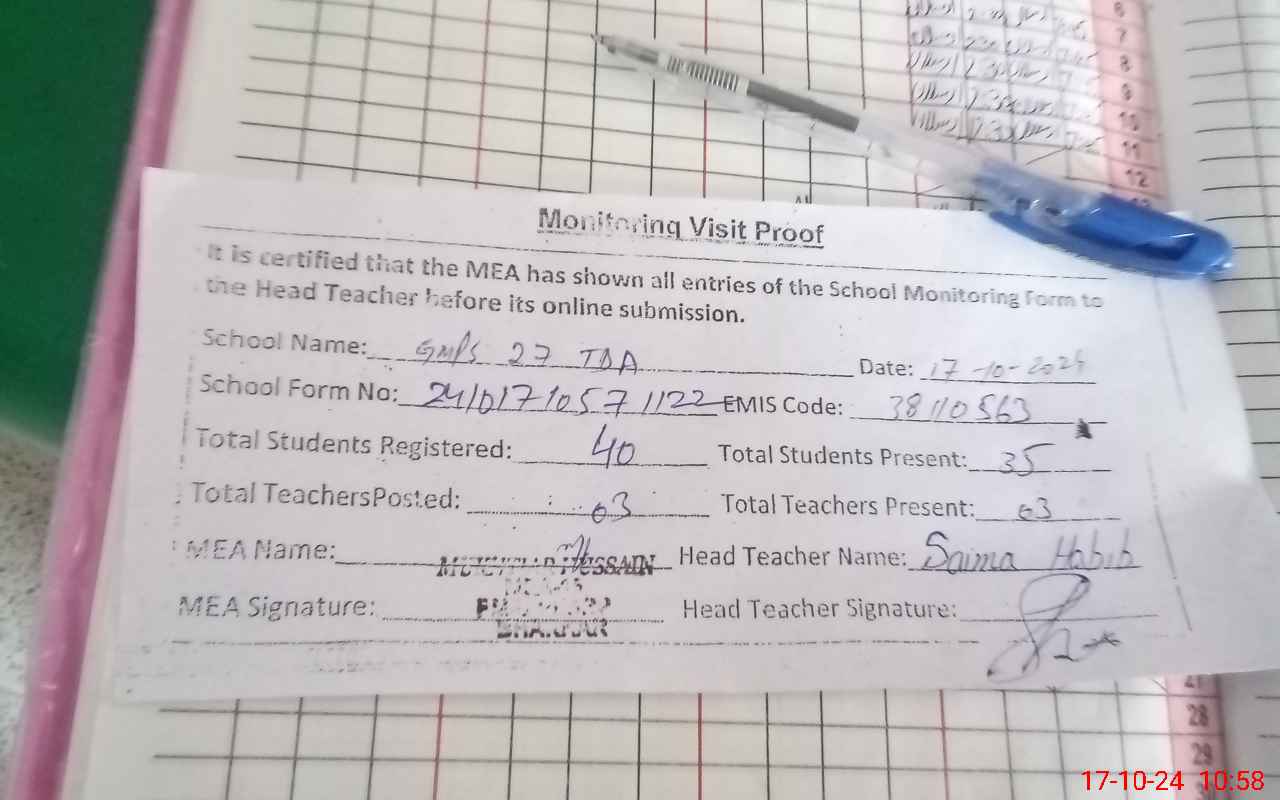 6
7
8
9
10
11
12
Monitoring Visit Proof
It is certified that the MEA has shown all entries of the School Monitoring Form to
the Head Teacher before its online submission.
School Name: GMPS 27 TDA Date: 17-10-2024
School Form No: 24101710571122 EMIS Code: 38110563
Total Students Registered: 40 Total Students Present: 35
Total TeachersPosted: 03 Total Teachers Present: 03
MEA Name: HUSSAIN Head Teacher Name: Saima Habib
MEA Signature: Head Teacher Signature:
28
29
17-10-24 10:58